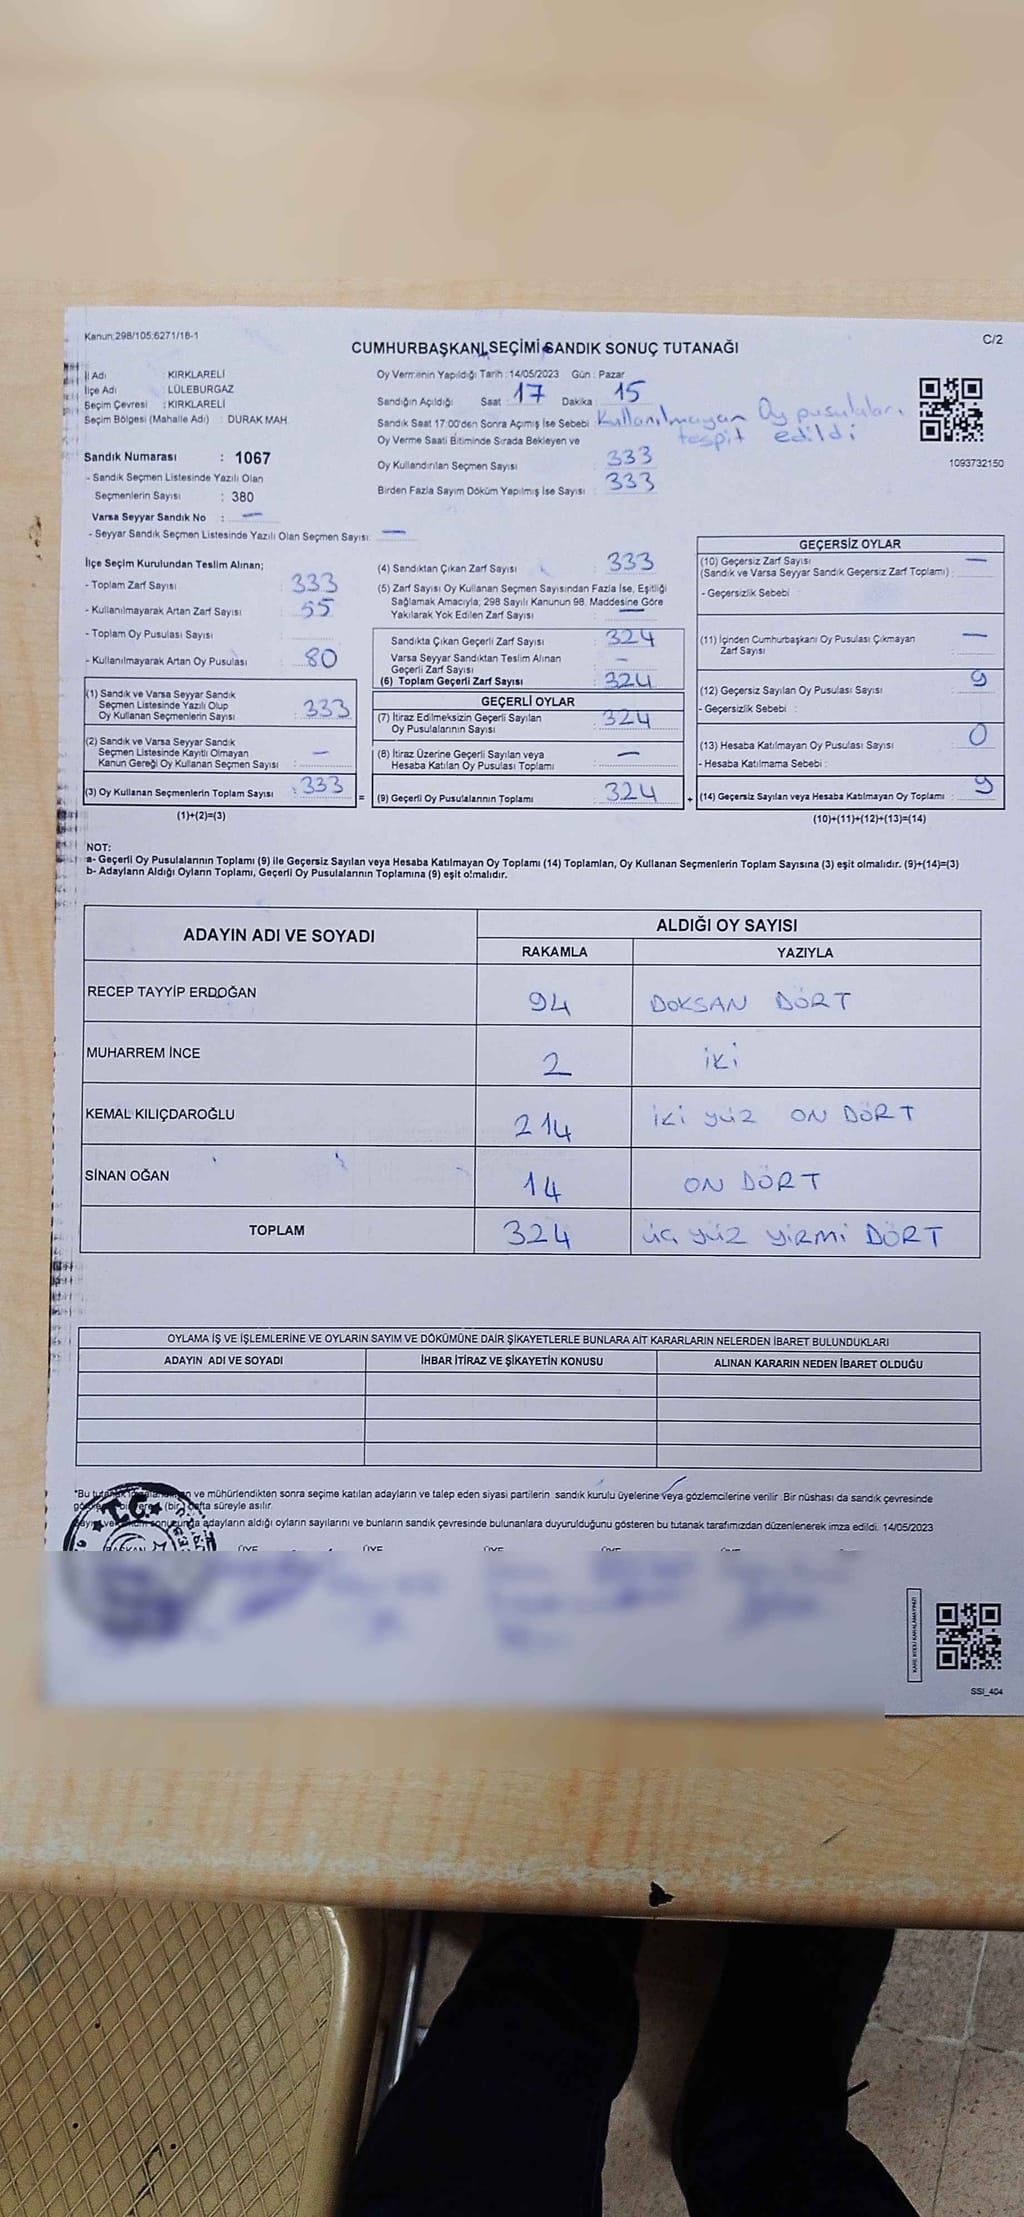 Kanun:298/105;6271/18-1
C/2
CUMHURBAŞKANI SEÇİMİ SANDIK SONUÇ TUTANAĞI
İl Adı : KIRKLARELİ
İlçe Adı : LÜLEBURGAZ
Seçim Çevresi : KIRKLARELİ
Seçim Bölgesi (Mahalle Adı) : DURAK MAH.
Sandık Numarası : 1067
- Sandık Seçmen Listesinde Yazılı Olan
Seçmenlerin Sayısı : 380
Varsa Seyyar Sandık No : —
- Seyyar Sandık Seçmen Listesinde Yazılı Olan Seçmen Sayısı: —
Oy Vermenin Yapıldığı Tarih : 14/05/2023 Gün : Pazar
Sandığın Açıldığı Saat 17 Dakika 15
Sandık Saat 17:00'den Sonra Açımış İse Sebebi : Kullanılmayan Oy pusulaları
tespit edildi
Oy Verme Saati Bitiminde Sırada Bekleyen ve
Oy Kullandırılan Seçmen Sayısı : 333
Birden Fazla Sayım Döküm Yapılmış İse Sayısı : 333
1093732150
İlçe Seçim Kurulundan Teslim Alınan;
- Toplam Zarf Sayısı : 333
- Kullanılmayarak Artan Zarf Sayısı : 55
- Toplam Oy Pusulası Sayısı :
- Kullanılmayarak Artan Oy Pusulası : 80
(1) Sandık ve Varsa Seyyar Sandık
Seçmen Listesinde Yazılı Olup
Oy Kullanan Seçmenlerin Sayısı : 333
(2) Sandık ve Varsa Seyyar Sandık
Seçmen Listesinde Kayıtlı Olmayan
Kanun Gereği Oy Kullanan Seçmen Sayısı : —
(3) Oy Kullanan Seçmenlerin Toplam Sayısı : 333 =
(1)+(2)=(3)
(4) Sandıktan Çıkan Zarf Sayısı : 333
(5) Zarf Sayısı Oy Kullanan Seçmen Sayısından Fazla İse, Eşitliği
Sağlamak Amacıyla; 298 Sayılı Kanunun 98. Maddesine Göre
Yakılarak Yok Edilen Zarf Sayısı : —
Sandıkta Çıkan Geçerli Zarf Sayısı : 324
Varsa Seyyar Sandıktan Teslim Alınan
Geçerli Zarf Sayısı : —
(6) Toplam Geçerli Zarf Sayısı : 324
GEÇERLİ OYLAR
(7) İtiraz Edilmeksizin Geçerli Sayılan
Oy Pusulalarının Sayısı : 324
(8) İtiraz Üzerine Geçerli Sayılan veya
Hesaba Katılan Oy Pusulası Toplamı : —
(9) Geçerli Oy Pusulalarının Toplamı : 324 +
GEÇERSİZ OYLAR
(10) Geçersiz Zarf Sayısı : —
(Sandık ve Varsa Seyyar Sandık Geçersiz Zarf Toplamı) :
- Geçersizlik Sebebi :
(11) İçinden Cumhurbaşkanı Oy Pusulası Çıkmayan
Zarf Sayısı : —
(12) Geçersiz Sayılan Oy Pusulası Sayısı : 9
- Geçersizlik Sebebi :
(13) Hesaba Katılmayan Oy Pusulası Sayısı : 0
- Hesaba Katılmama Sebebi :
(14) Geçersiz Sayılan veya Hesaba Katılmayan Oy Toplamı : 9
(10)+(11)+(12)+(13)=(14)
NOT:
a- Geçerli Oy Pusulalarının Toplamı (9) ile Geçersiz Sayılan veya Hesaba Katılmayan Oy Toplamı (14) Toplamları, Oy Kullanan Seçmenlerin Toplam Sayısına (3) eşit olmalıdır. (9)+(14)=(3)
b- Adayların Aldığı Oyların Toplamı, Geçerli Oy Pusulalarının Toplamına (9) eşit olmalıdır.
ADAYIN ADI VE SOYADI ALDIĞI OY SAYISI
RAKAMLA YAZIYLA
RECEP TAYYİP ERDOĞAN 94 DOKSAN DÖRT
MUHARREM İNCE 2 iki
KEMAL KILIÇDAROĞLU 214 iki yüz ON DÖRT
SİNAN OĞAN 14 ON DÖRT
TOPLAM 324 üç yüz yirmi DÖRT
OYLAMA İŞ VE İŞLEMLERİNE VE OYLARIN SAYIM VE DÖKÜMÜNE DAİR ŞİKAYETLERLE BUNLARA AİT KARARLARIN NELERDEN İBARET BULUNDUKLARI
ADAYIN ADI VE SOYADI İHBAR İTİRAZ VE ŞİKAYETİN KONUSU ALINAN KARARIN NEDEN İBARET OLDUĞU
*Bu tutanak ve mühürlendikten sonra seçime katılan adayların ve talep eden siyasi partilerin sandık kurulu üyelerine veya gözlemcilerine verilir. Bir nüshası da sandık çevresinde
bir yere (bir) hafta süreyle asılır.
sonucunda adayların aldığı oyların sayılarını ve bunların sandık çevresinde bulunanlara duyurulduğunu gösteren bu tutanak tarafımızdan düzenlenerek imza edildi. 14/05/2023
T.C.
BAŞKAN ÜYE ÜYE ÜYE ÜYE ÜYE
KARE KODU KARALAMAYINIZ!
SSI_404